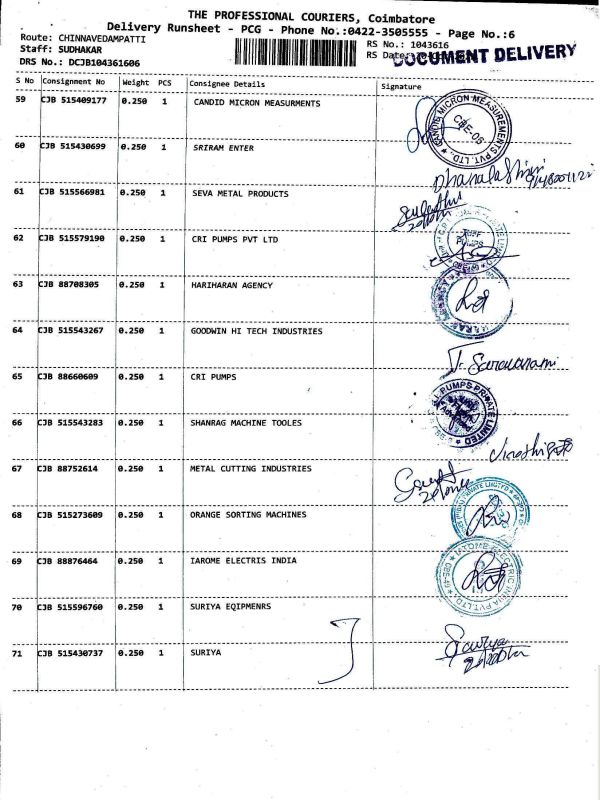 THE PROFESSIONAL COURIERS, Coimbatore
Delivery Runsheet - PCG - Phone No.:0422-3505555 - Page No.:6
Route: CHINNAVEDAMPATTI
RS No.: 1043616
Staff: SUDHAKAR
RS Date:
DOCUMENT DELIVERY
DRS No.: DCJB104361606
S No Consignment No Weight PCS Consignee Details Signature
59 CJB 515409177 0.250 1 CANDID MICRON MEASURMENTS
CANDID MICRON MEASUREMENTS PVT. LTD.
CBE-06
60 CJB 515430699 0.250 1 SRIRAM ENTER
61 CJB 515566981 0.250 1 SEVA METAL PRODUCTS
62 CJB 515579190 0.250 1 CRI PUMPS PVT LTD
63 CJB 88708305 0.250 1 HARIHARAN AGENCY
64 CJB 515543267 0.250 1 GOODWIN HI TECH INDUSTRIES
65 CJB 88660609 0.250 1 CRI PUMPS
PUMPS PRIVATE LIMITED
66 CJB 515543283 0.250 1 SHANRAG MACHINE TOOLES
67 CJB 88752614 0.250 1 METAL CUTTING INDUSTRIES
68 CJB 515273609 0.250 1 ORANGE SORTING MACHINES
PRIVATE LIMITED
69 CJB 88876464 0.250 1 IAROME ELECTRIS INDIA
ELECTRIC INDIA PVT. LTD.
70 CJB 515596760 0.250 1 SURIYA EQIPMENRS
71 CJB 515430737 0.250 1 SURIYA
Saurya